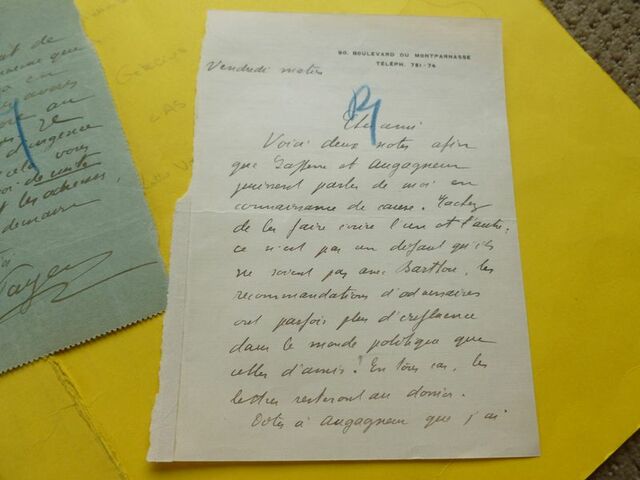 90, BOULEVARD DU MONTPARNASSE
TÉLÉPH. 751-74
Vendredi matin
Cher ami
Voici deux notes afin
que Lafferre et Augagneur
puissent parler de moi en
connaissance de cause. Tachez
de les faire écrire l'un et l'autre :
ce n'est pas un défaut qu'ils
ne soient pas avec Barthou, les
recommandations d'adversaires
ont parfois plus d'influence
dans le monde politique que
celles d'amis ! En tous cas, les
lettres resteront au dossier.
Dites à Augagneur que j'ai
ait de
que
en
au
d'urgence
vous
de suite
et les